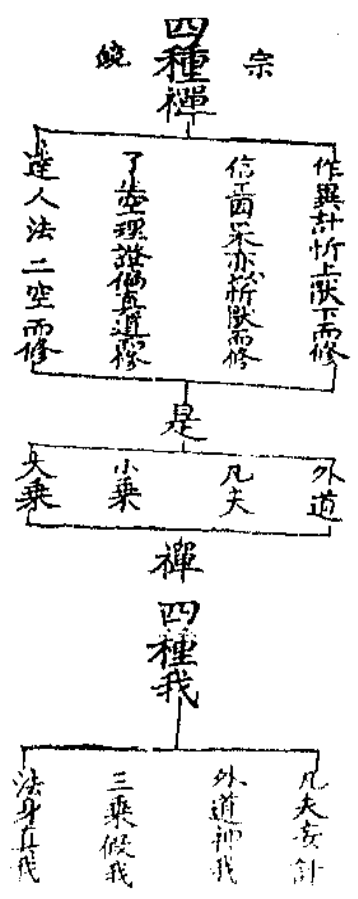 四種禪
宗鏡
作異計忻上猒下而修
信正因果亦以忻猒而修
了生空理證偏真道而修
達人法二空而修
是
外道
凡夫
小乘
大乘
禪
四種我
凡夫妄計
外道神我
三乘假我
法身真我